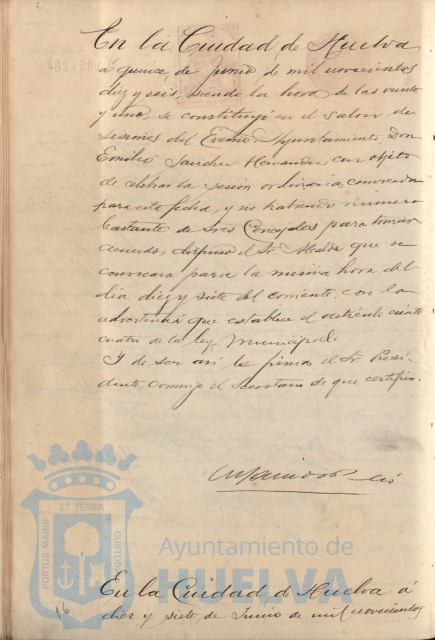 En la Ciudad de Huelva
á quince de Junio de mil novecientos
diez y seis, siendo la hora de las veinte
y una, se constituyó en el salon de
sesiones del Excmo. Ayuntamiento, Don
Emilio Sanchez Hernandez, con objeto
de celebrar la sesión ordinaria convocada
para esta fecha, y no habiendo número
bastante de Sres Concejales para tomar
acuerdo, dispuso el Sr. Alcalde que se
convocara para la misma hora del
dia diez y siete del corriente, con la
advertencia que establece el artículo ciento
cuatro de la ley Municipal.
Y de ser así lo firma el Sr. Presi-
dente, conmigo el Secretario de que certifico.
PORTUS MARIS ET TERRÆ CUSTODIA
Ayuntamiento de
HUELVA
En la Ciudad de Huelva á
diez y siete de Junio de mil novecientos
16